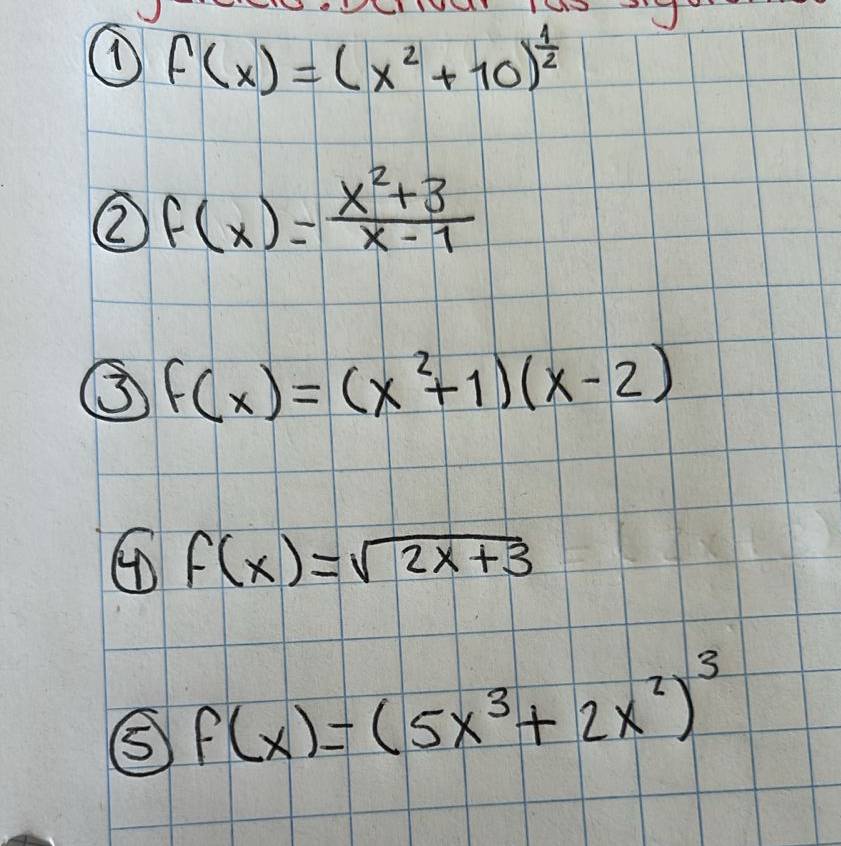 Derivar las
① f(x) = (x² + 10)^(1/2)
② f(x) = (x² + 3)/(x - 1)
③ f(x) = (x² + 1)(x - 2)
④ f(x) = √(2x + 3)
⑤ f(x) = (5x³ + 2x²)³